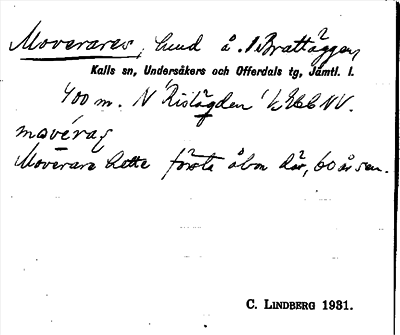 Moverares, lund å. Brattåggen
Kalls sn, Undersåkers och Offerdals tg, Jämtl. l.
400 m. N Ristågden
mověrag
Moverare hette förste åbon där, 60 år sen.
C. LINDBERG 1931.